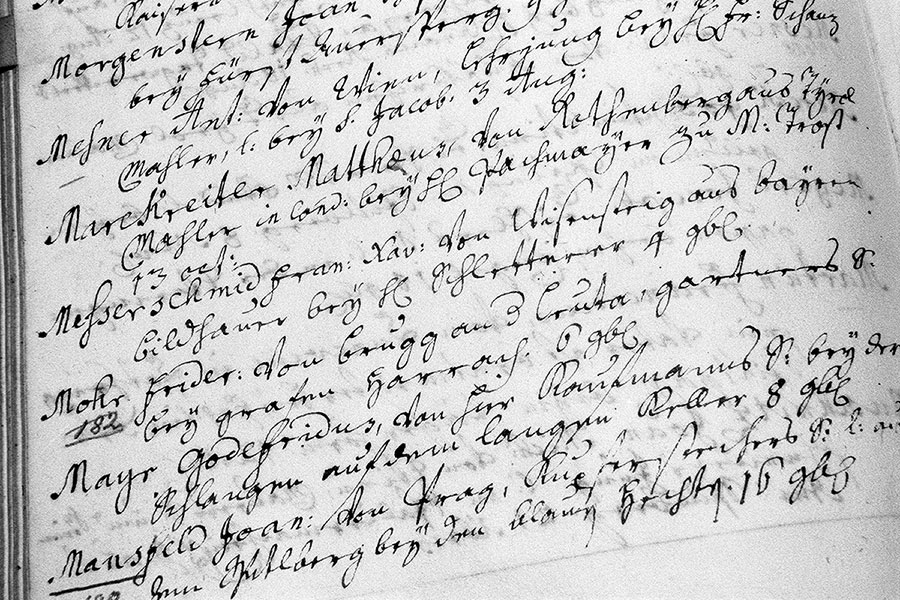 Kaisers
Morgenstern Joan
bey Fürst Auersperg. 9
Mesner Ant: von Wien, Lehrjung bey H Fr: Schanz
Mahler, l: bey S. Jacob. 3 Aug:
Marckreiter Matthæus, von Rothenberg aus Tyrol
Mahler in cond: bey H Pachmayer zu M: Trost
13 oct:
Messerschmid Fran: Xav: von Wisensteig aus bayren
bildhauer bey H Schletterer 4 gbr
Mohr Frider: von brugg an d Leuta, gartners S:
182 bey grafen Harrach. 6 gbr
Mayr Godefridus, von hier Kaufmanns S: bey der
Schlangen auf dem langen Keller 8 gbr
Mansfeld Joan: von Prag, Kupferstechers S: l: auf
dem Spitlberg bey den blauen Hechten. 16 gbr